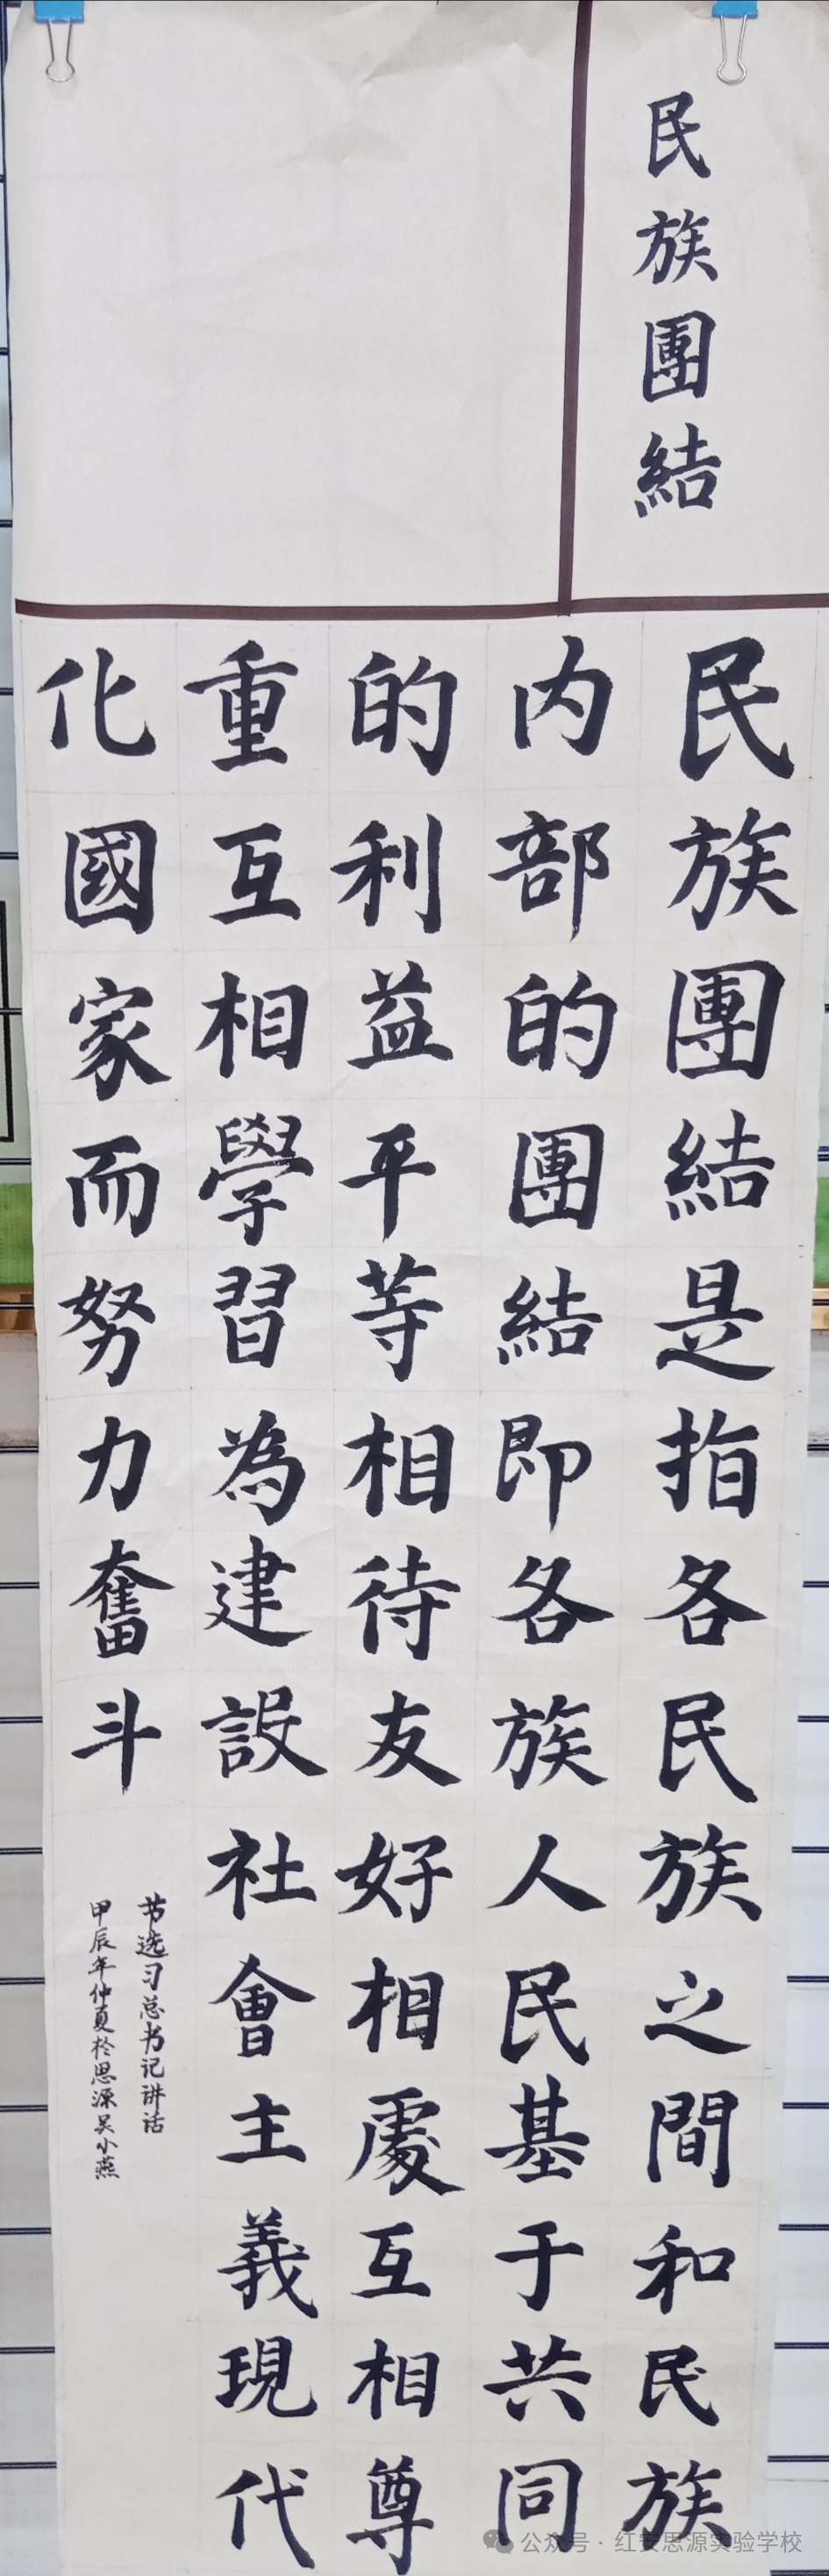 民族團結
民族團結是指各民族之間和民族
内部的團結即各族人民基于共同
的利益平等相待友好相處互相尊
重互相學習為建設社會主義現代
化國家而努力奮斗
节选习总书记讲话
甲辰年仲夏於思源吴小燕
公众号·红安思源实验学校